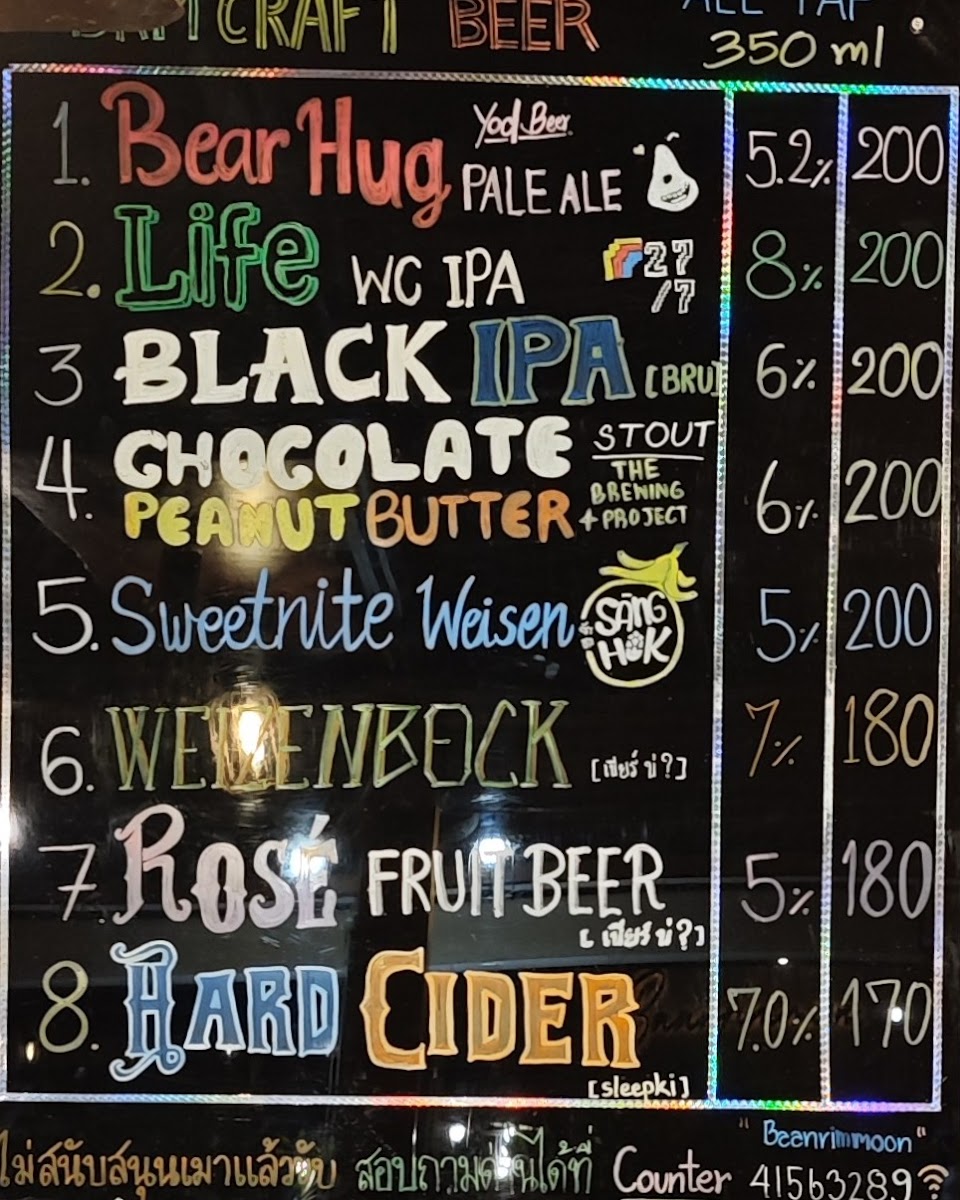 CRAFT BEER
ALL TAP
350 ml
1. Bear Hug Yod Beer PALE ALE 5.2% 200
2. Life WC IPA 27/7 8% 200
3 BLACK IPA [BRU] 6% 200
4. CHOCOLATE STOUT
PEANUT BUTTER THE BREWING PROJECT 6% 200
5. Sweetnite Weisen SANG HOK 5% 200
6. WEIZENBOCK [เบียร์ บ่?] 7% 180
7. ROSÉ FRUIT BEER [เบียร์ บ่?] 5% 180
8. HARD CIDER [sleepki] 7.0% 170
"Baanrimmoon"
ไม่สนับสนุนเมาแล้วขับ สอบถามด้านได้ที่ Counter 41563289